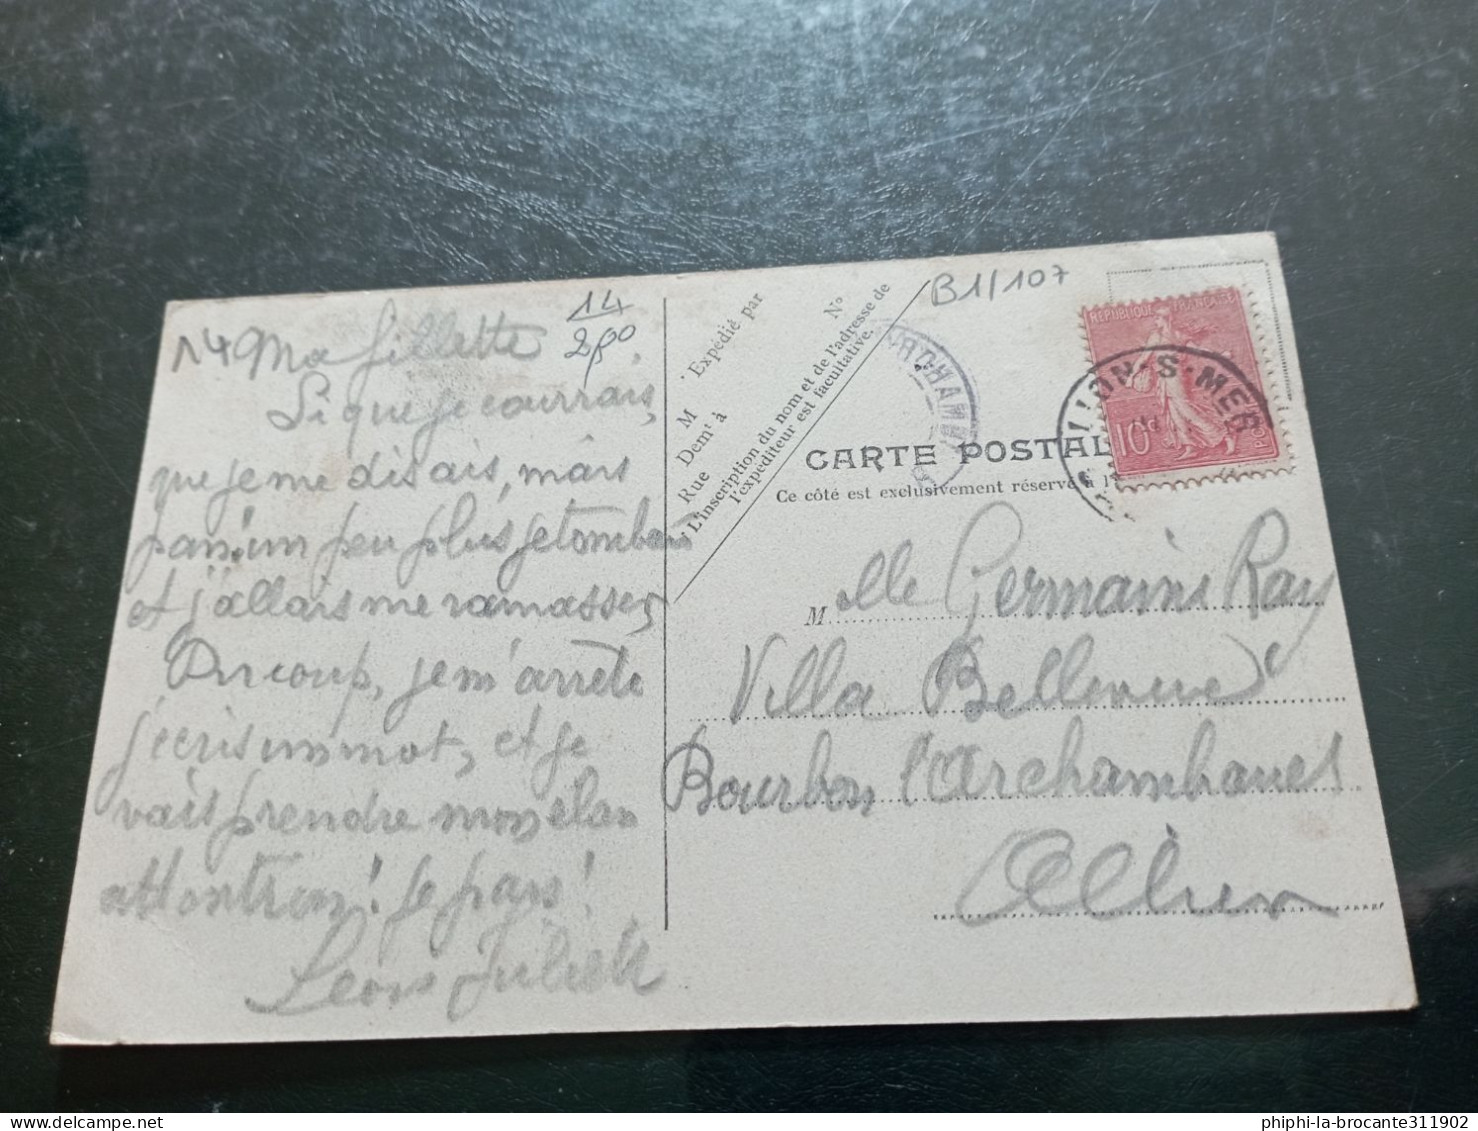 14 Ma fillette
14
2,00
Si que je courrais,
que je me disais, mais
pan! un peu plus je tombais
et j'allais me ramasser,
Du coup, je m'arrête
j'écris un mot, et je
vais prendre mon élan
attention! je pars!
Léon Juliette
M
Expédié par
Demt à
Rue
No
L'inscription du nom et de l'adresse de
l'expéditeur est facultative.
B1/107
REPUBLIQUE FRANÇAISE
10
POSTES
S. MEG
CARTE POSTAL
Ce côté est exclusivement réservé à l'
M elle Germaine Ray
Villa Bellevue
Bourbon l'Archambault
Allier
phiphi-la-brocante311902